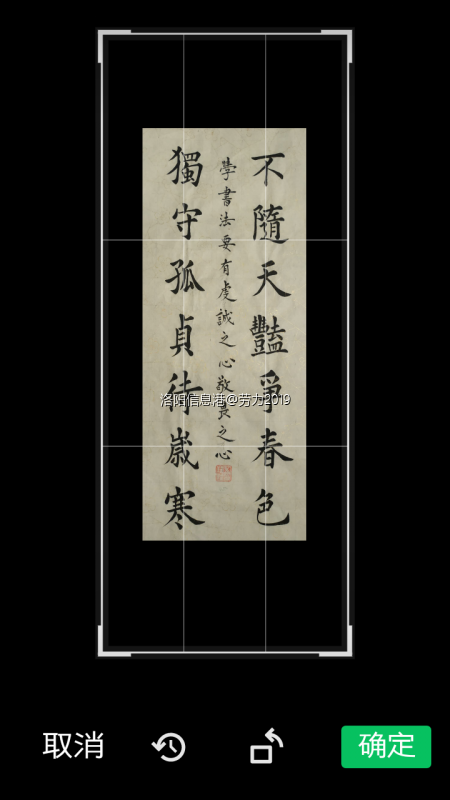 不隨天豔爭春色
學書法要有虔誠之心敬畏之心
獨守孤貞待歲寒
洛阳信息港@劳力2019
取消
确定